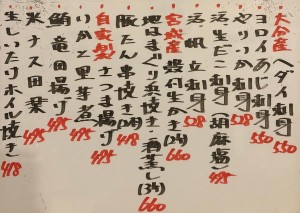 大分産 ヘダイ刺身 550
ヨロイあじ刺身 550
やりいか刺身 528
活 帆立 刺身 528
活生だこ刺身(胡麻醤) 495
宮城産 殻付生かき(2ヶ) 660
地はまぐり浜焼き・酒蒸し(3ヶ) 660
豚たん串焼き(2本) 418
自家製 さつま揚げ 495
いかと里芋煮 495
鮪 竜田揚げ 495
米ナス田楽 495
生しいたけホイル焼き 418